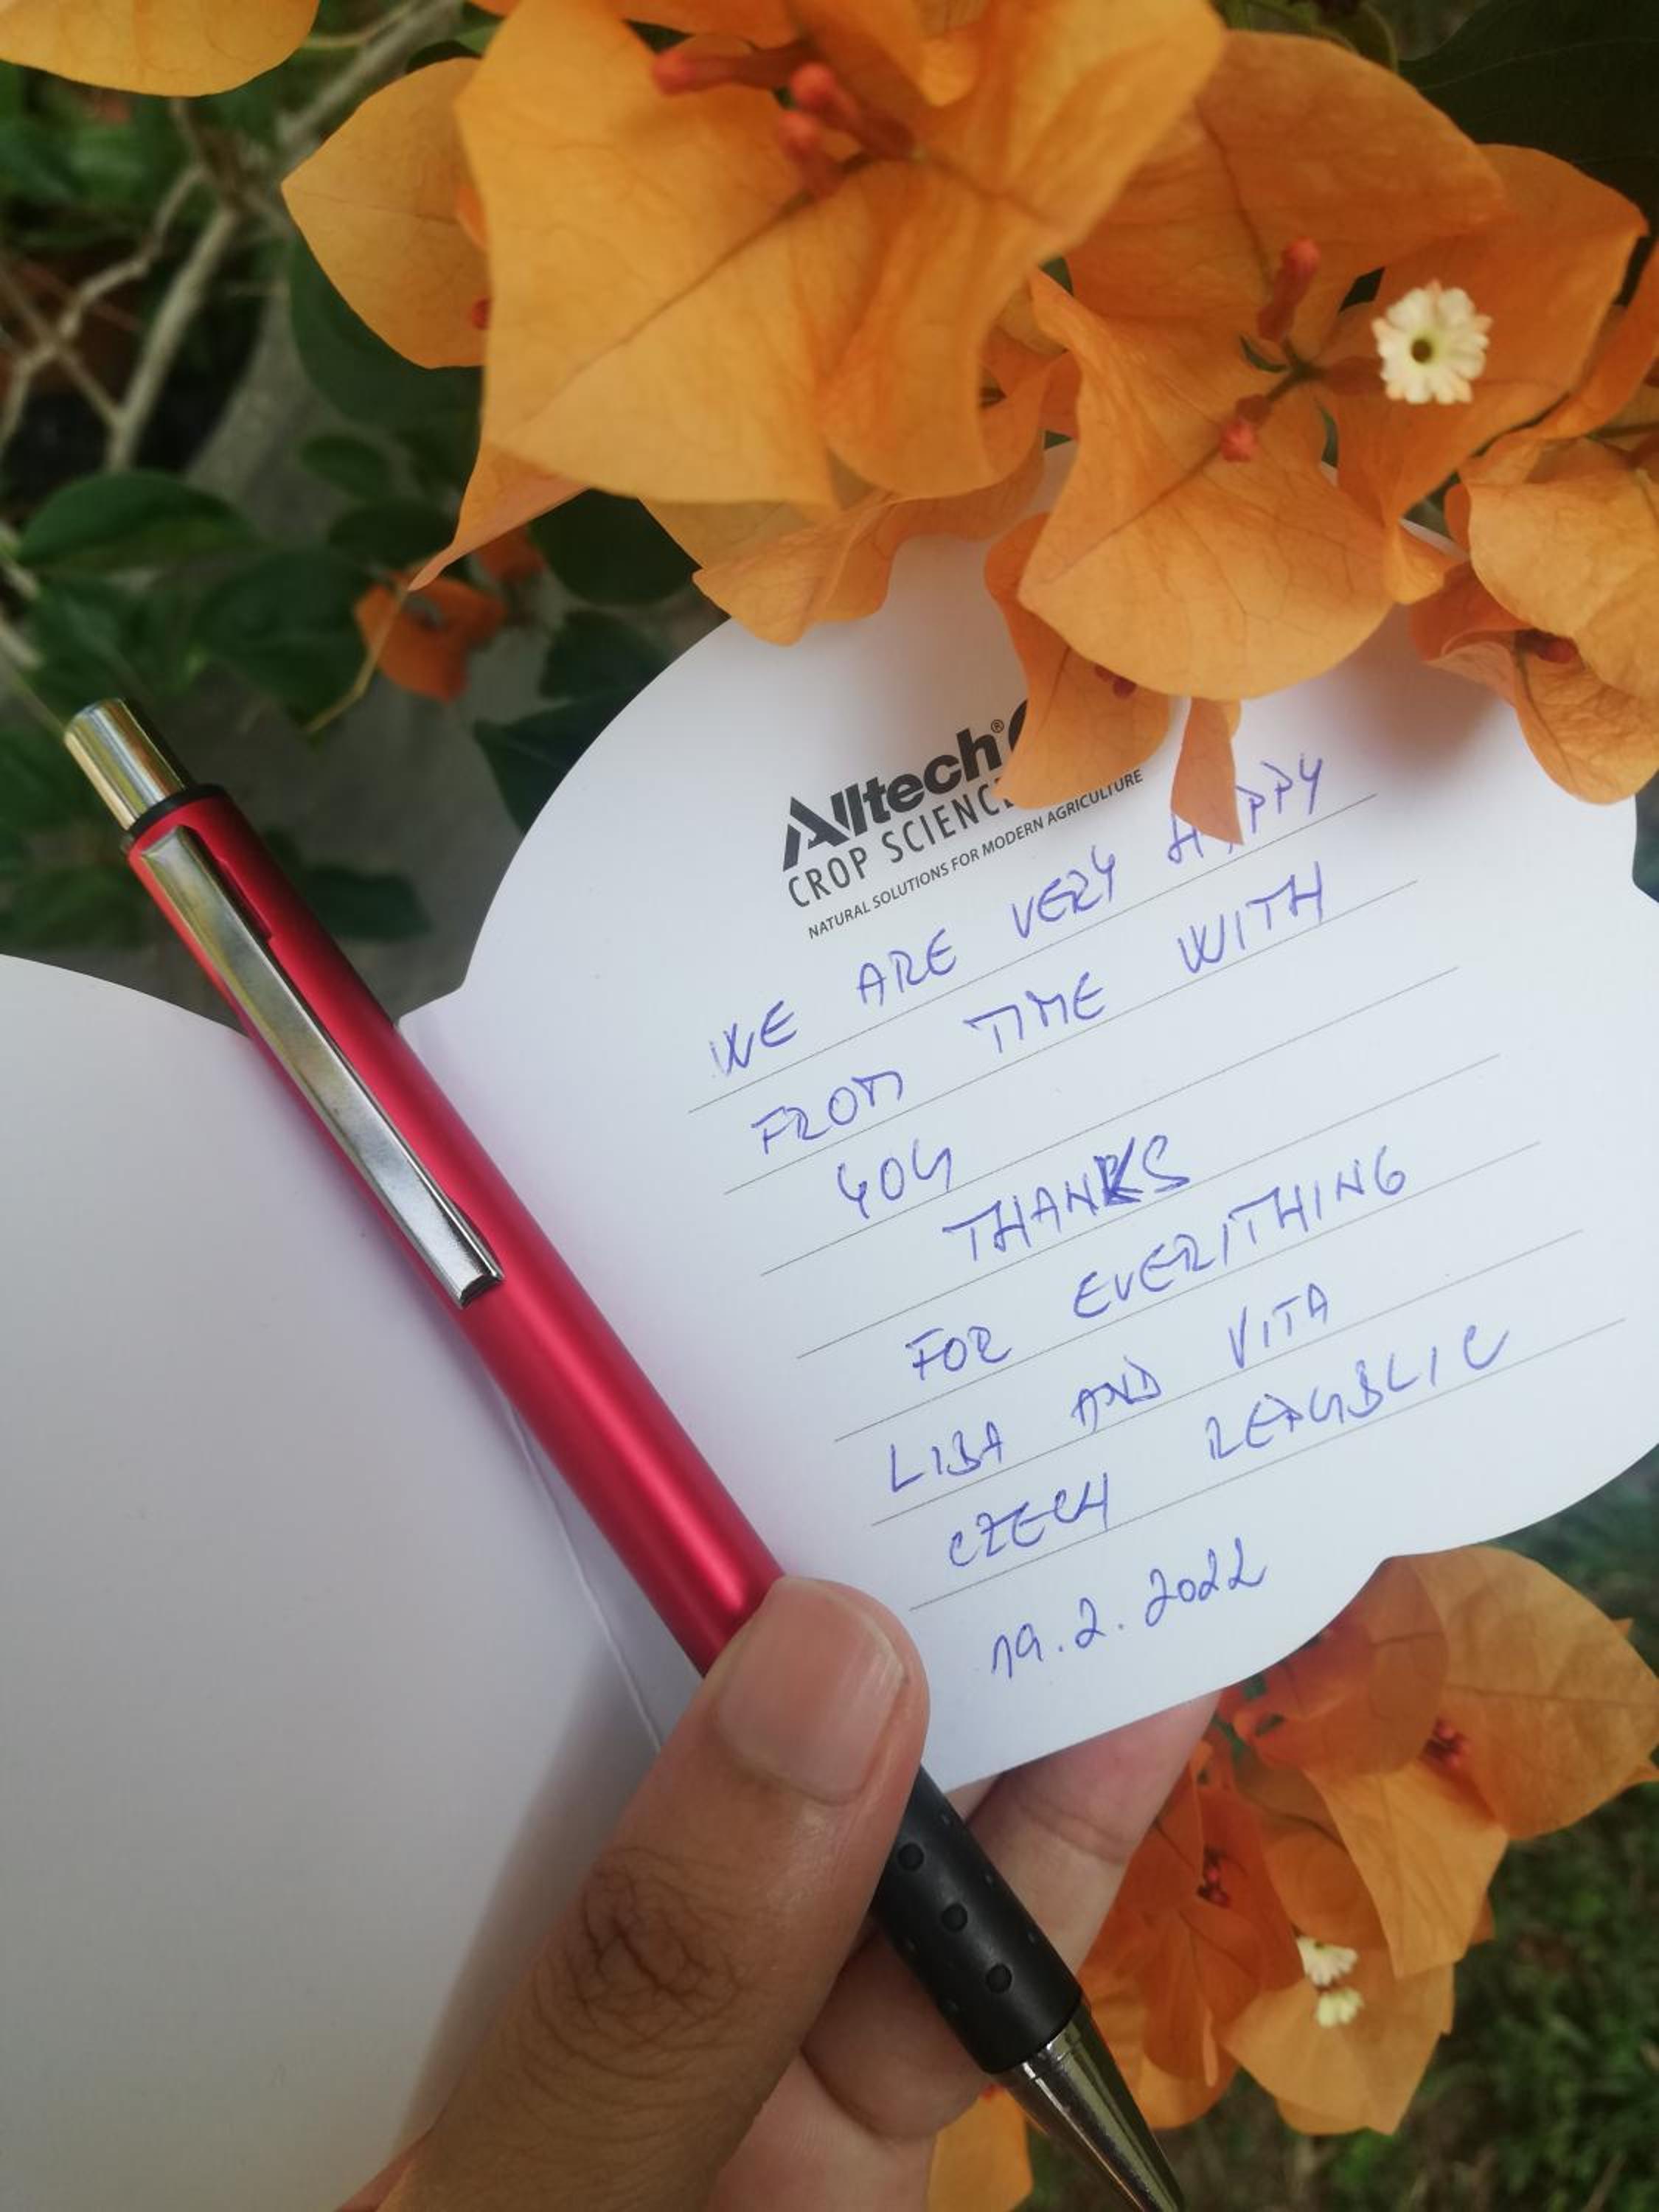 Alltech®
CROP SCIENCE
NATURAL SOLUTIONS FOR MODERN AGRICULTURE
WE ARE VERY HAPPY
FROM TIME WITH
YOU
THANKS
FOR EVERITHING
LIBA AND VITA
CZECH REPUBLIC
19.2.2022